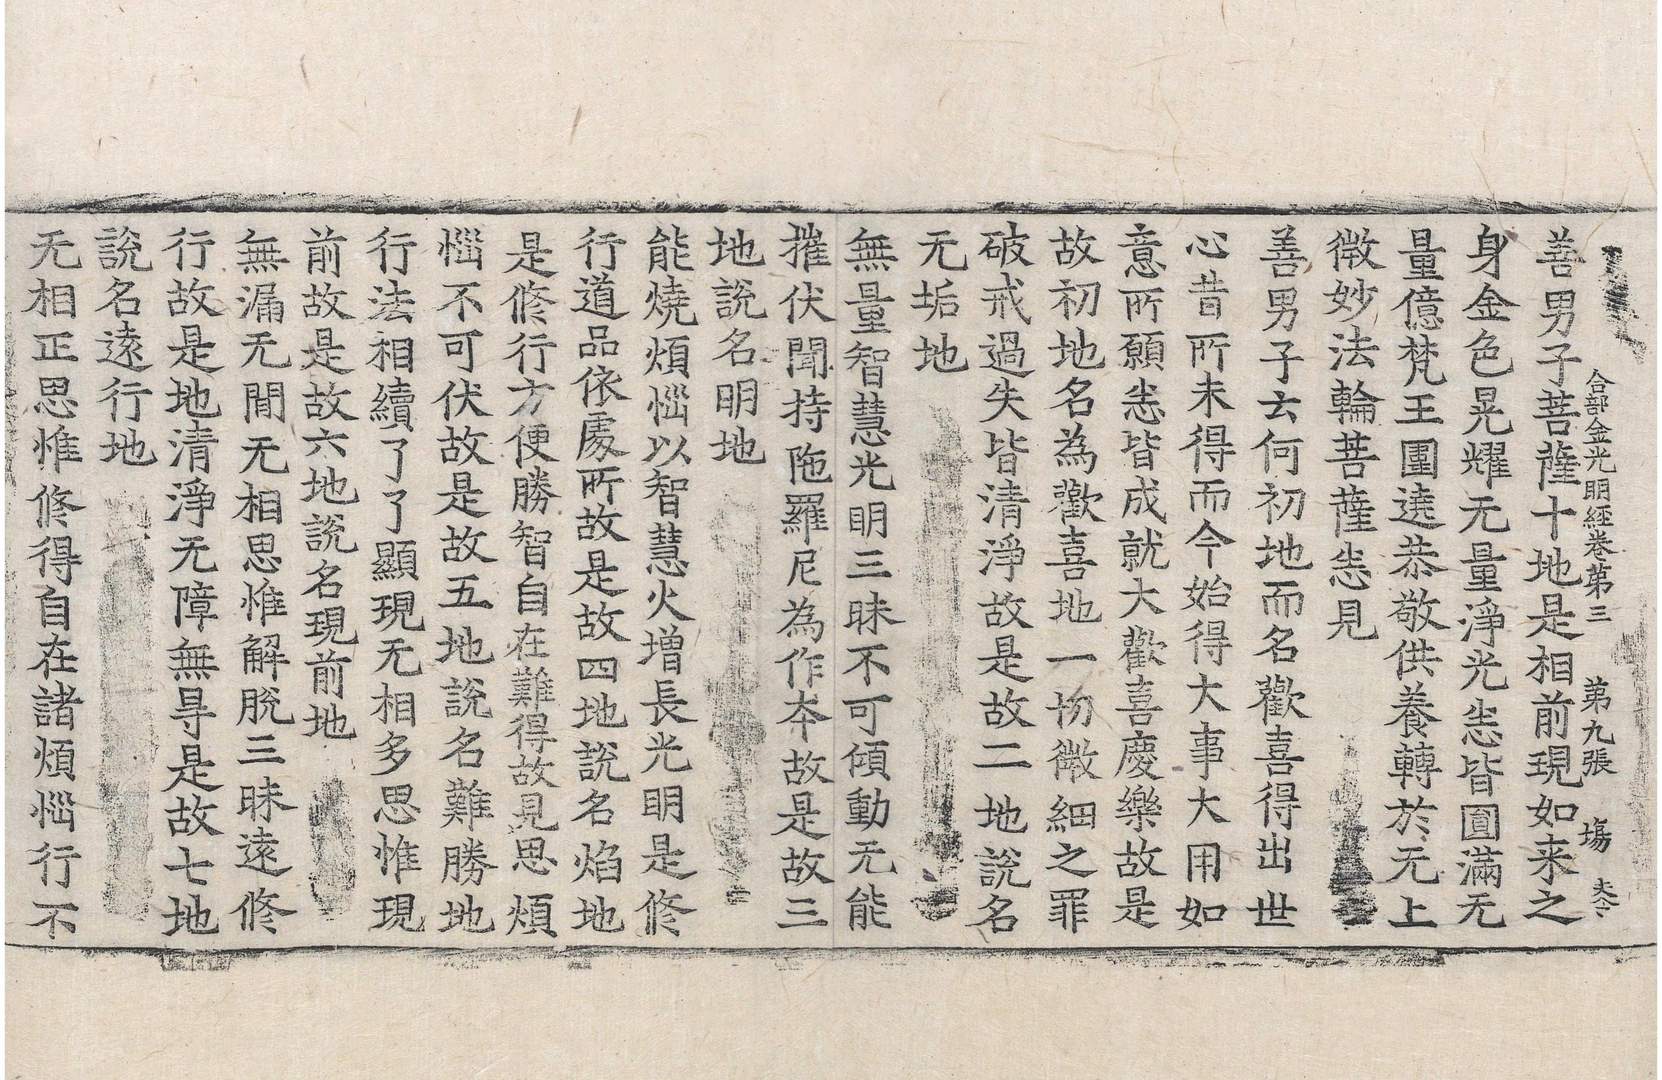 合部金光明經卷第三　第九張　塲
善男子菩薩十地是相前現如来之
身金色晃耀无量淨光悉皆圓滿无
量億梵王圍遶恭敬供養轉於无上
微妙法輪菩薩悉見
善男子云何初地而名歡喜得出世
心昔所未得而今始得大事大用如
意所願悉皆成就大歡喜慶樂故是
故初地名為歡喜地一切微細之罪
破戒過失皆清淨故是故二地說名
无垢地
無量智慧光明三昧不可傾動无能
摧伏聞持陁羅尼為作夲故是故三
地說名明地
能燒煩惱以智慧火増長光明是修
行道品依處所故是故四地說名焰地
是修行方便勝智自在難得故見思煩
惱不可伏故是故五地說名難勝地
行法相續了了顯現无相多思惟現
前故是故六地說名現前地
無漏无間无相思惟解脫三昧遠修
行故是地清淨无障無㝵是故七地
說名遠行地
无相正思惟修得自在諸煩惱行不